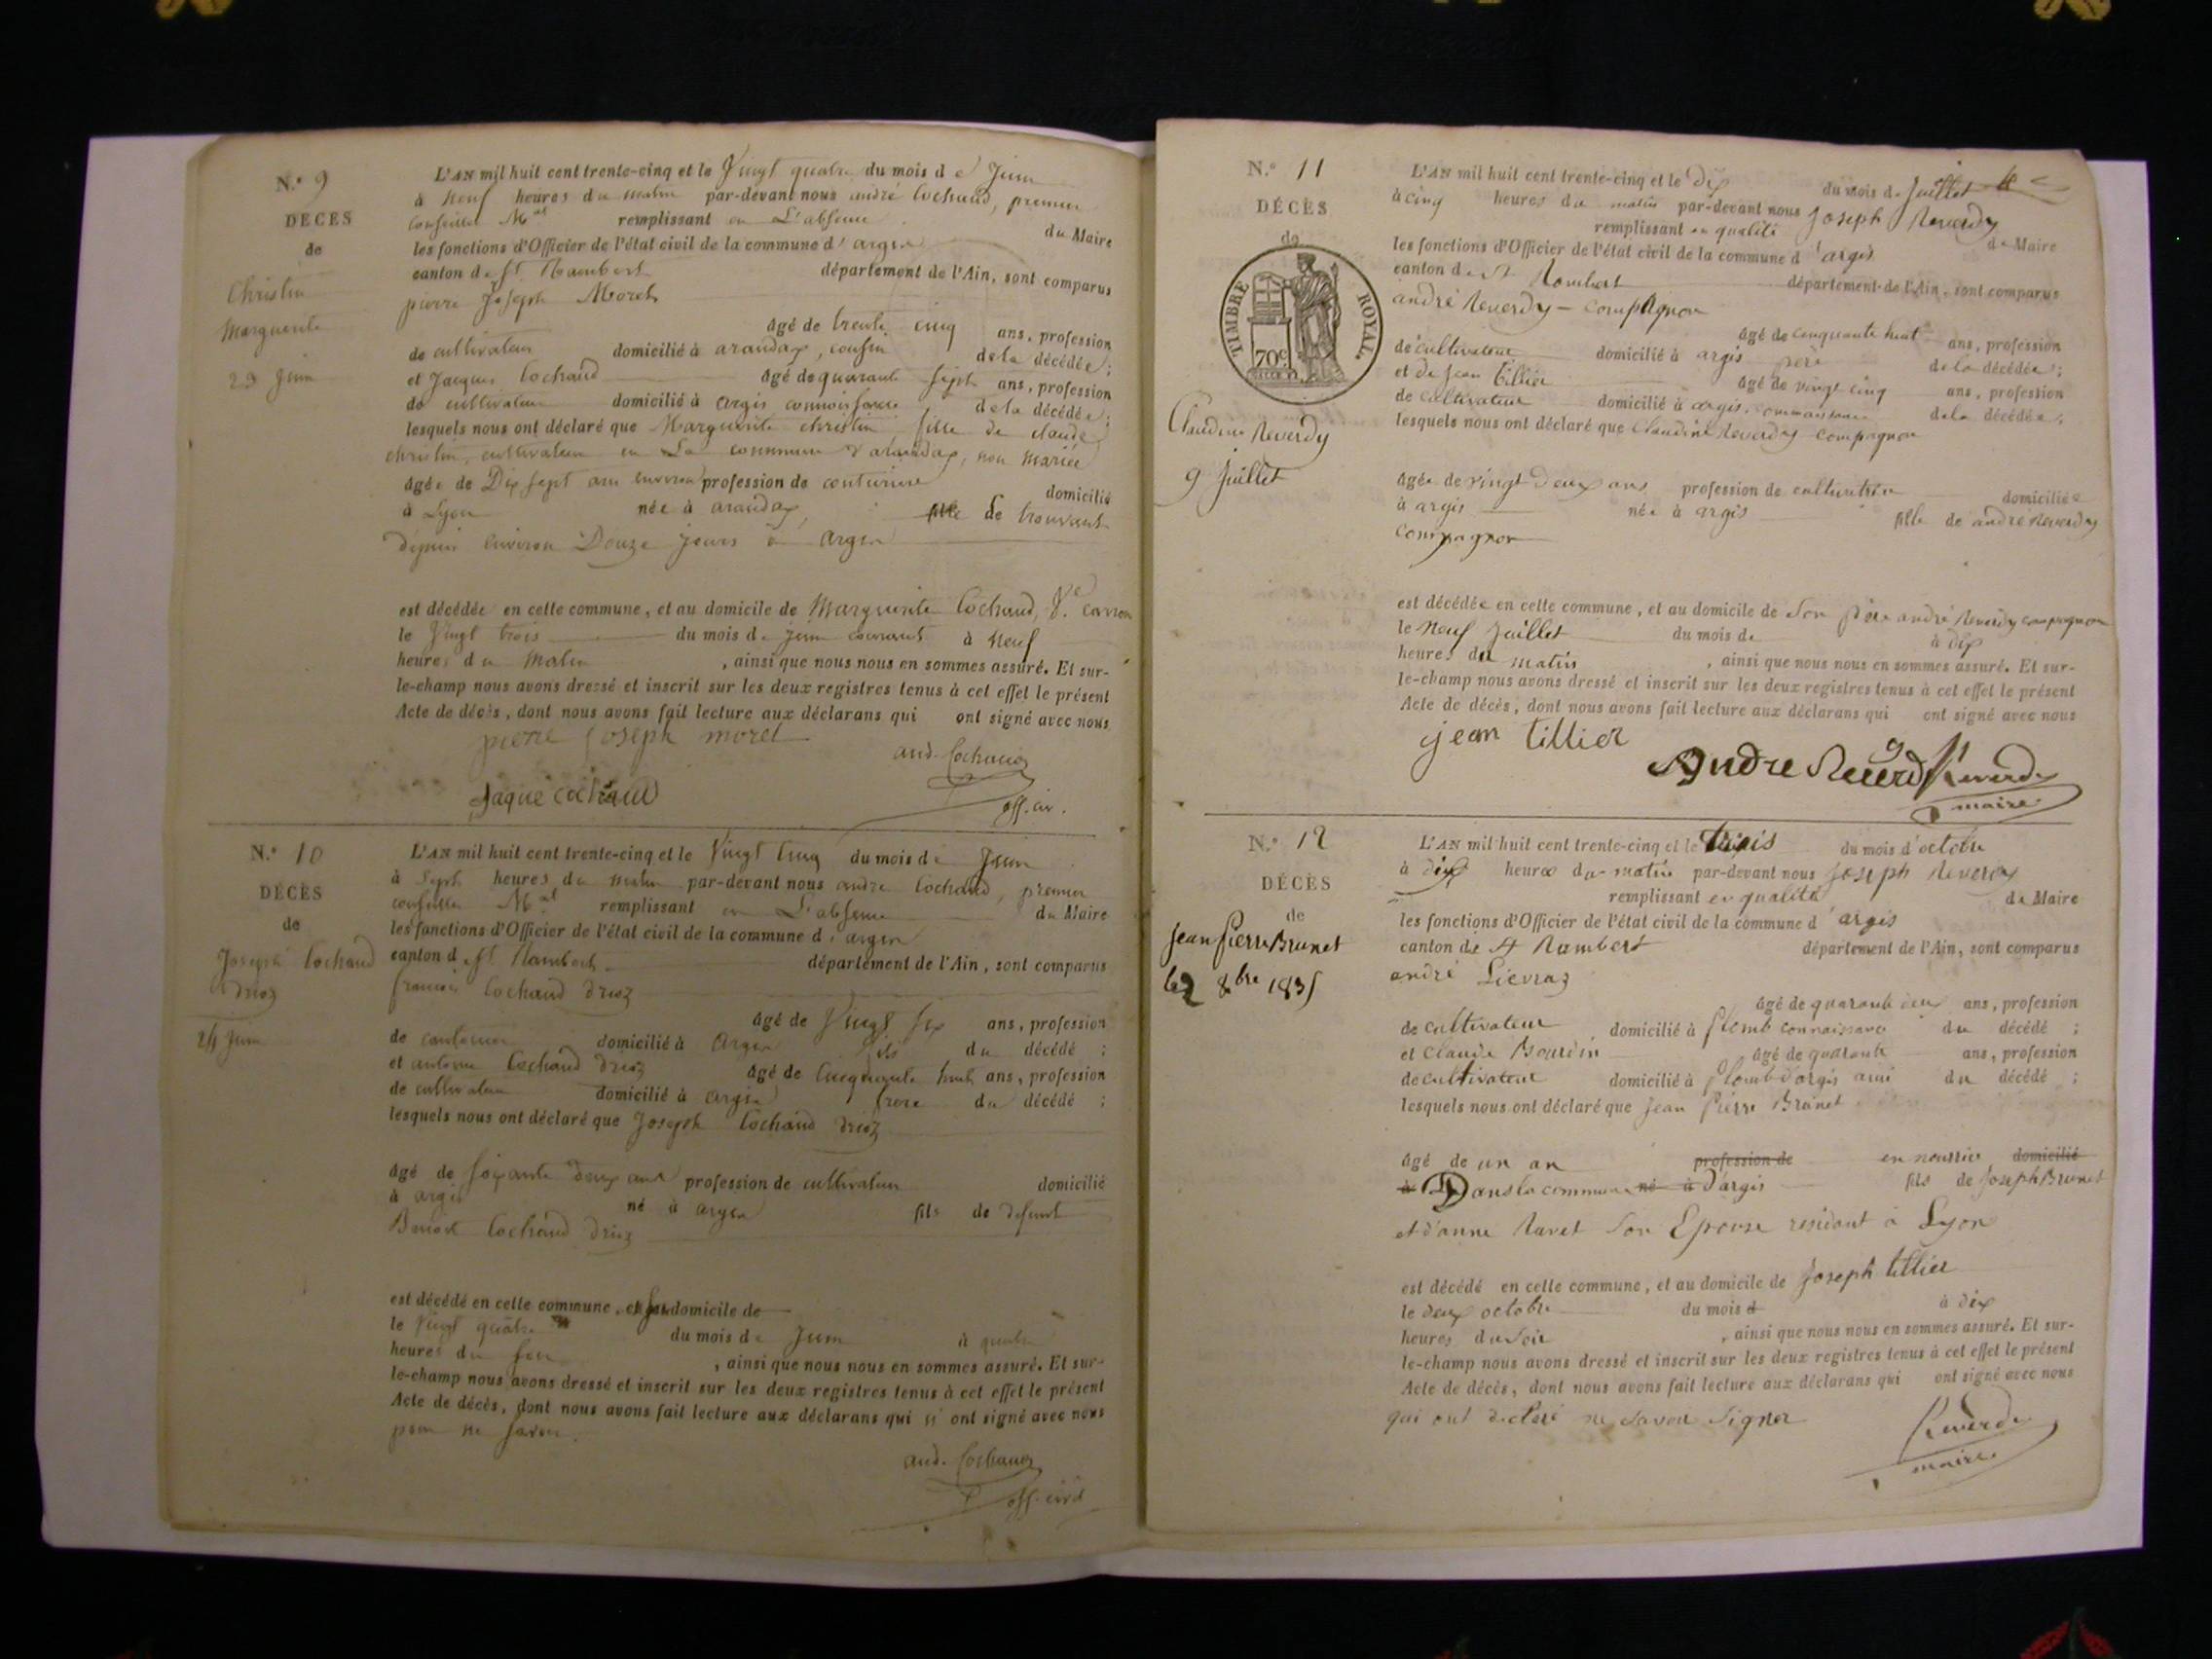 N.° 9
DÉCÈS
de
Christin
Marguerite
23 Juin
L'AN mil huit cent trente-cinq et le Vingt quatre du mois de Juin
à neuf heures du matin par-devant nous andré Cochaud, premier
conseiller M.al remplissant en L'absence du Maire
les fonctions d'Officier de l'état civil de la commune d' argis
canton de St. Rambert département de l'Ain, sont comparus
pierre Joseph Moret
âgé de trente cinq ans, profession
de cultivateur domicilié à arandas, cousin de la décédée;
et Jacques Cochaud âgé de quarante sept ans, profession
de cultivateur domicilié à argis connoissance de la décédée;
lesquels nous ont déclaré que Marguerite christin fille de claude
christin, cultivateur en La commune d'arandas, non mariée
âgée de Dix sept ans environ profession de couturière domicilié
à Lyon née à arandas, fille se trouvant
depuis environ Douze jours à argis
est décédée en cette commune, et au domicile de Marguerite Cochaud, V.e
le Vingt trois du mois de juin courant à neuf
heures du matin, ainsi que nous nous en sommes assuré. Et sur-
le-champ nous avons dressé et inscrit sur les deux registres tenus à cet effet le présent
Acte de décès, dont nous avons fait lecture aux déclarans qui ont signé avec nous
pierre joseph moret
and. Cochaud
Jaque cochaud
off. civ.
N.° 10
DÉCÈS
de
Joseph Cochaud
Drioz
24 Juin
L'AN mil huit cent trente-cinq et le Vingt cinq du mois de Juin
à Sept heures du matin par-devant nous andré Cochaud, premier
conseiller M.al remplissant en L'absence du Maire
les fonctions d'Officier de l'état civil de la commune d' argis
canton de St. Rambert département de l'Ain, sont comparus
françois Cochaud Drioz
âgé de Vingt six ans, profession
de domicilié à argis fils du décédé;
et antoine Cochaud Drioz âgé de Cinquante huit ans, profession
de cultivateur domicilié à argis frere du décédé;
lesquels nous ont déclaré que Joseph Cochaud Drioz
âgé de soixante deux ans profession de cultivateur domicilié
à argis né à argis fils de defunt
Benoit Cochaud Drioz
est décédé en cette commune, et domicile de
le Vingt quatre du mois de Juin à quatre
heures du soir, ainsi que nous nous en sommes assuré. Et sur-
le-champ nous avons dressé et inscrit sur les deux registres tenus à cet effet le présent
Acte de décès, dont nous avons fait lecture aux déclarans qui n' ont signé avec nous
pour ne savoir
and. Cochaud
off. civil
N.° 11
DÉCÈS
de
TIMBRE ROYAL.
70c
Claudine Reverdy
9 Juillet
L'AN mil huit cent trente-cinq et le Dix du mois de Juillet
à cinq heures du matin par-devant nous Joseph Reverdy
remplissant en qualité de Maire
les fonctions d'Officier de l'état civil de la commune d' argis
canton de St Rambert département de l'Ain, sont comparus
andré Reverdy - compagnon
âgé de cinquante huit ans, profession
de cultivateur domicilié à argis pere de la décédée;
et de jean tillier âgé de vingt cinq ans, profession
de cultivateur domicilié à argis, connaissance de la décédée;
lesquels nous ont déclaré que Claudine Reverdy compagnon
âgée de vingt deux ans profession de cultivatrice domiciliée
à argis née à argis fille de andré Reverdy
compagnon
est décédée en cette commune, et au domicile de Son père andré Reverdy compagnon
le neuf Juillet du mois de à dix
heures du matin, ainsi que nous nous en sommes assuré. Et sur-
le-champ nous avons dressé et inscrit sur les deux registres tenus à cet effet le présent
Acte de décès, dont nous avons fait lecture aux déclarans qui ont signé avec nous
jean tillier
Andre Reverdy Reverdy
maire
N.° 12
DÉCÈS
de
jean pierre Brunet
le 2 8bre 1835
L'AN mil huit cent trente-cinq et le trois du mois d'octobre
à dix heures du matin par-devant nous Joseph Reverdy
remplissant en qualité de Maire
les fonctions d'Officier de l'état civil de la commune d' argis
canton de St Rambert département de l'Ain, sont comparus
andré Lievraz
âgé de quarante deux ans, profession
de cultivateur domicilié à plomb connaissance du décédé;
et Claude Bourdin âgé de quarante ans, profession
de cultivateur domicilié à plomb d'argis ami du décédé;
lesquels nous ont déclaré que jean pierre Brunet
âgé de un an profession de en nourrice domicilié
à Dans la commune né à d'argis fils de Joseph Brunet
et d'anne Ravet son Epouse residant à Lyon
est décédé en cette commune, et au domicile de Joseph tillier
le deux octobre du mois d à dix
heures du soir, ainsi que nous nous en sommes assuré. Et sur-
le-champ nous avons dressé et inscrit sur les deux registres tenus à cet effet le présent
Acte de décès, dont nous avons fait lecture aux déclarans qui ont signé avec nous
qui ont declaré ne savoir signer
Reverdy
maire